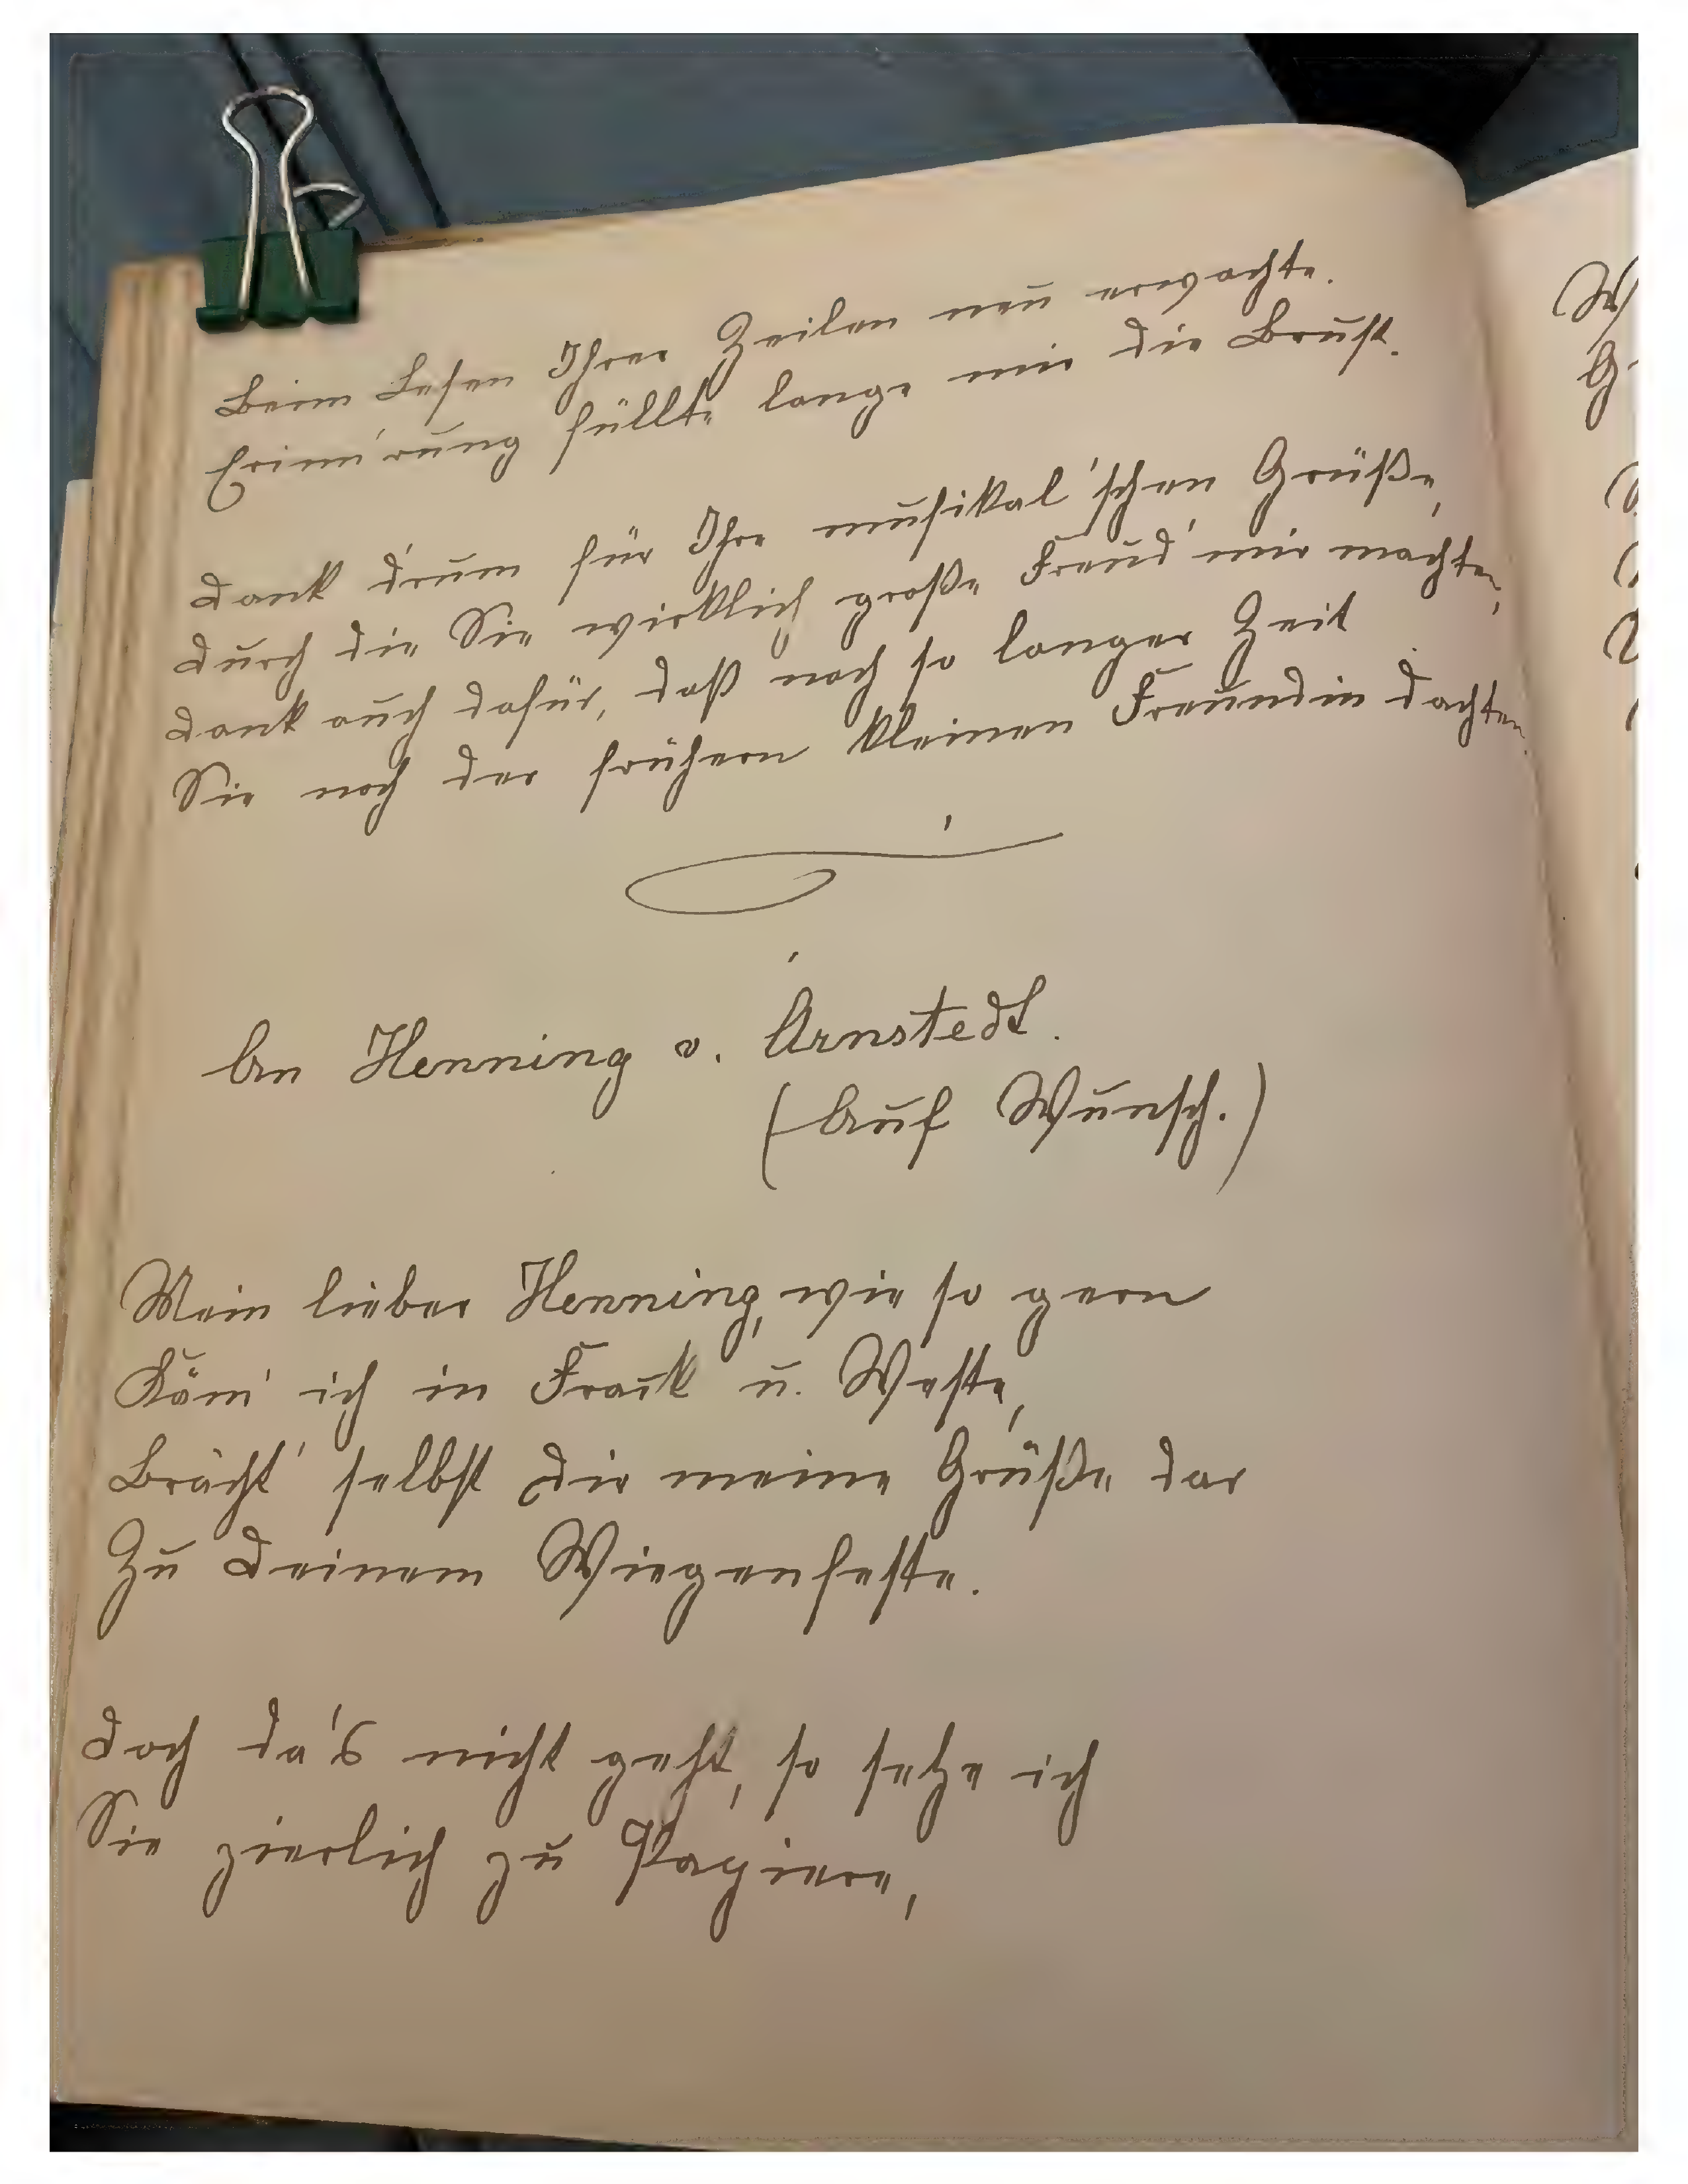 Beim Lesen Ihrer Zeilen neu erwachte.
Erinn'rung füllte lange mir die Brust.
Dank d'rum für Ihre musikal'schen Grüße,
Durch die Sie wirklich große Freud' mir machten,
Dank auch dafür, daß nach so langer Zeit
Sie noch der frühern kleinen Freundin dachten.
An Henning v. Arnstedt.
(Auf Wunsch.)
Mein lieber Henning, wie so gern
Käm' ich in Frack u. Weste,
Brächt' selbst Dir meine Grüße dar
Zu Deinem Wiegenfeste.
Doch da's nicht geht, so setze ich
Sie zierlich zu Papiere,